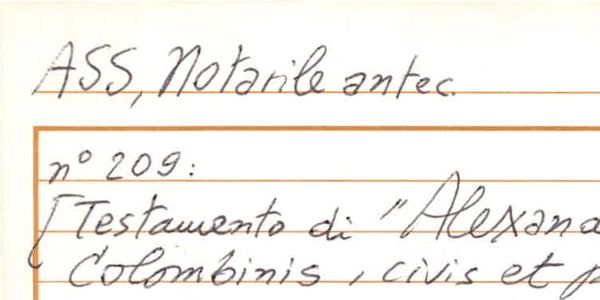 ASS, Notarile antec.
n° 209:
[Testamento di "Alexand
Colombinis, civis et p